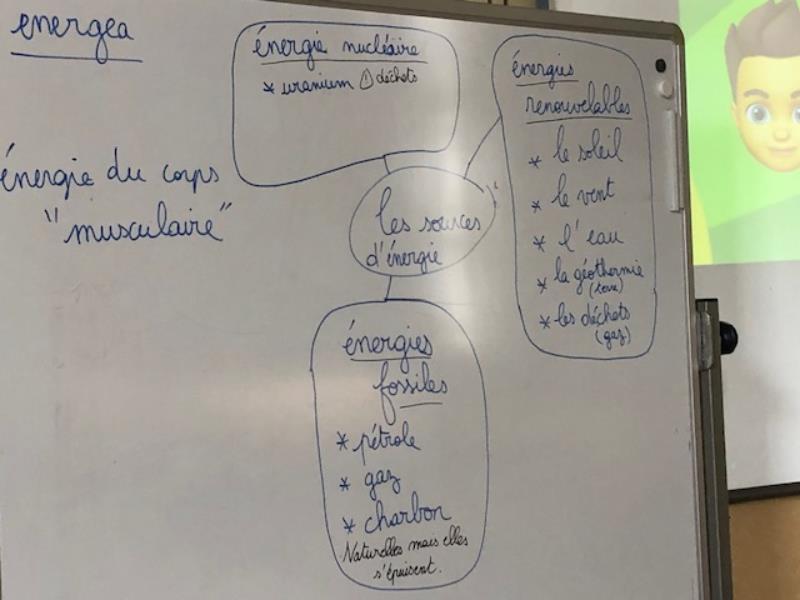 energea
énergie du corps
"musculaire"
énergie nucléaire
* uranium ⚠ déchets
énergies
renouvelables
* le soleil
* le vent
* l'eau
* la géothermie
* les déchets
(gaz)
les sources
d'énergie
énergies
fossiles
* pétrole
* gaz
* charbon
Naturelles mais elles
s'épuisent.